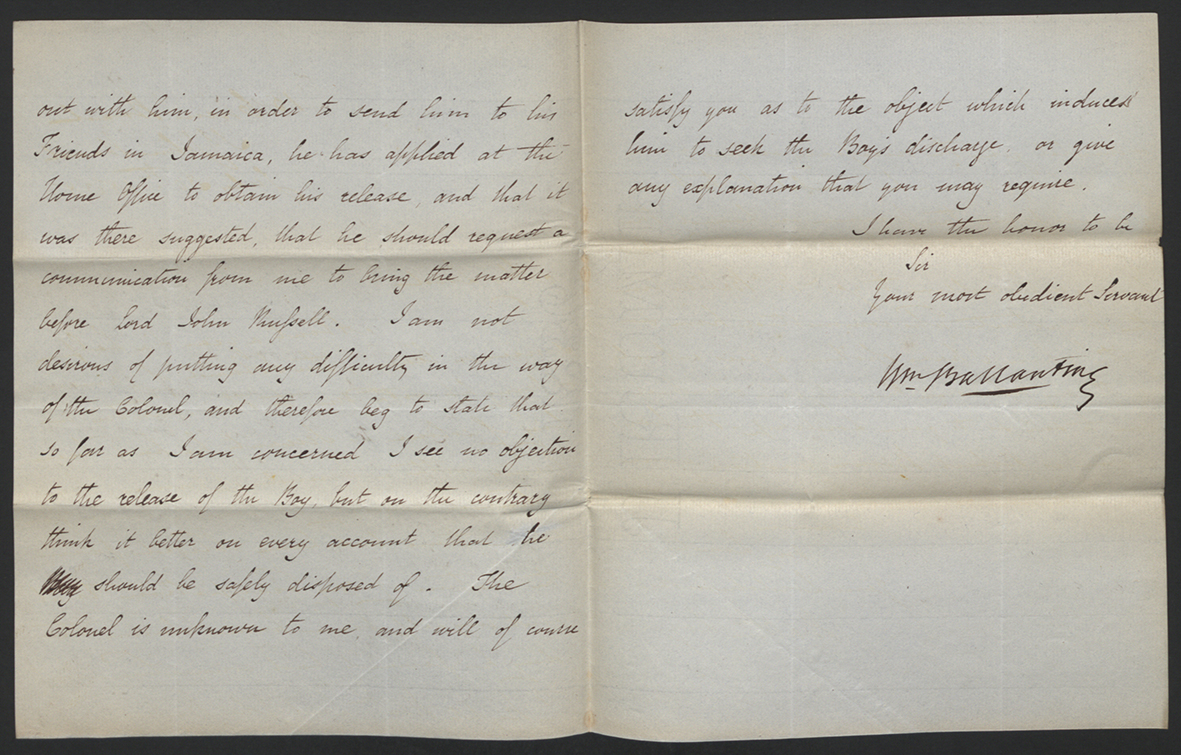 out with him, in order to send him to his
Friends in Jamaica, he has applied at the
Home Office to obtain his release, and that it
was there suggested, that he should request a
communication from me to bring the matter
before Lord John Russell. I am not
desirous of putting any difficulty in the way
of the Colonel, and therefore beg to state that
so far as I am concerned I see no objection
to the release of the Boy, but on the contrary
think it better on every account that he
should be safely disposed of. The
Colonel is unknown to me, and will of course
satisfy you as to the object which induces
him to seek the Boy's discharge, or give
any explanation that you may require.
I have the honor to be
Sir
Your most obedient Servant
Wm Ballantine